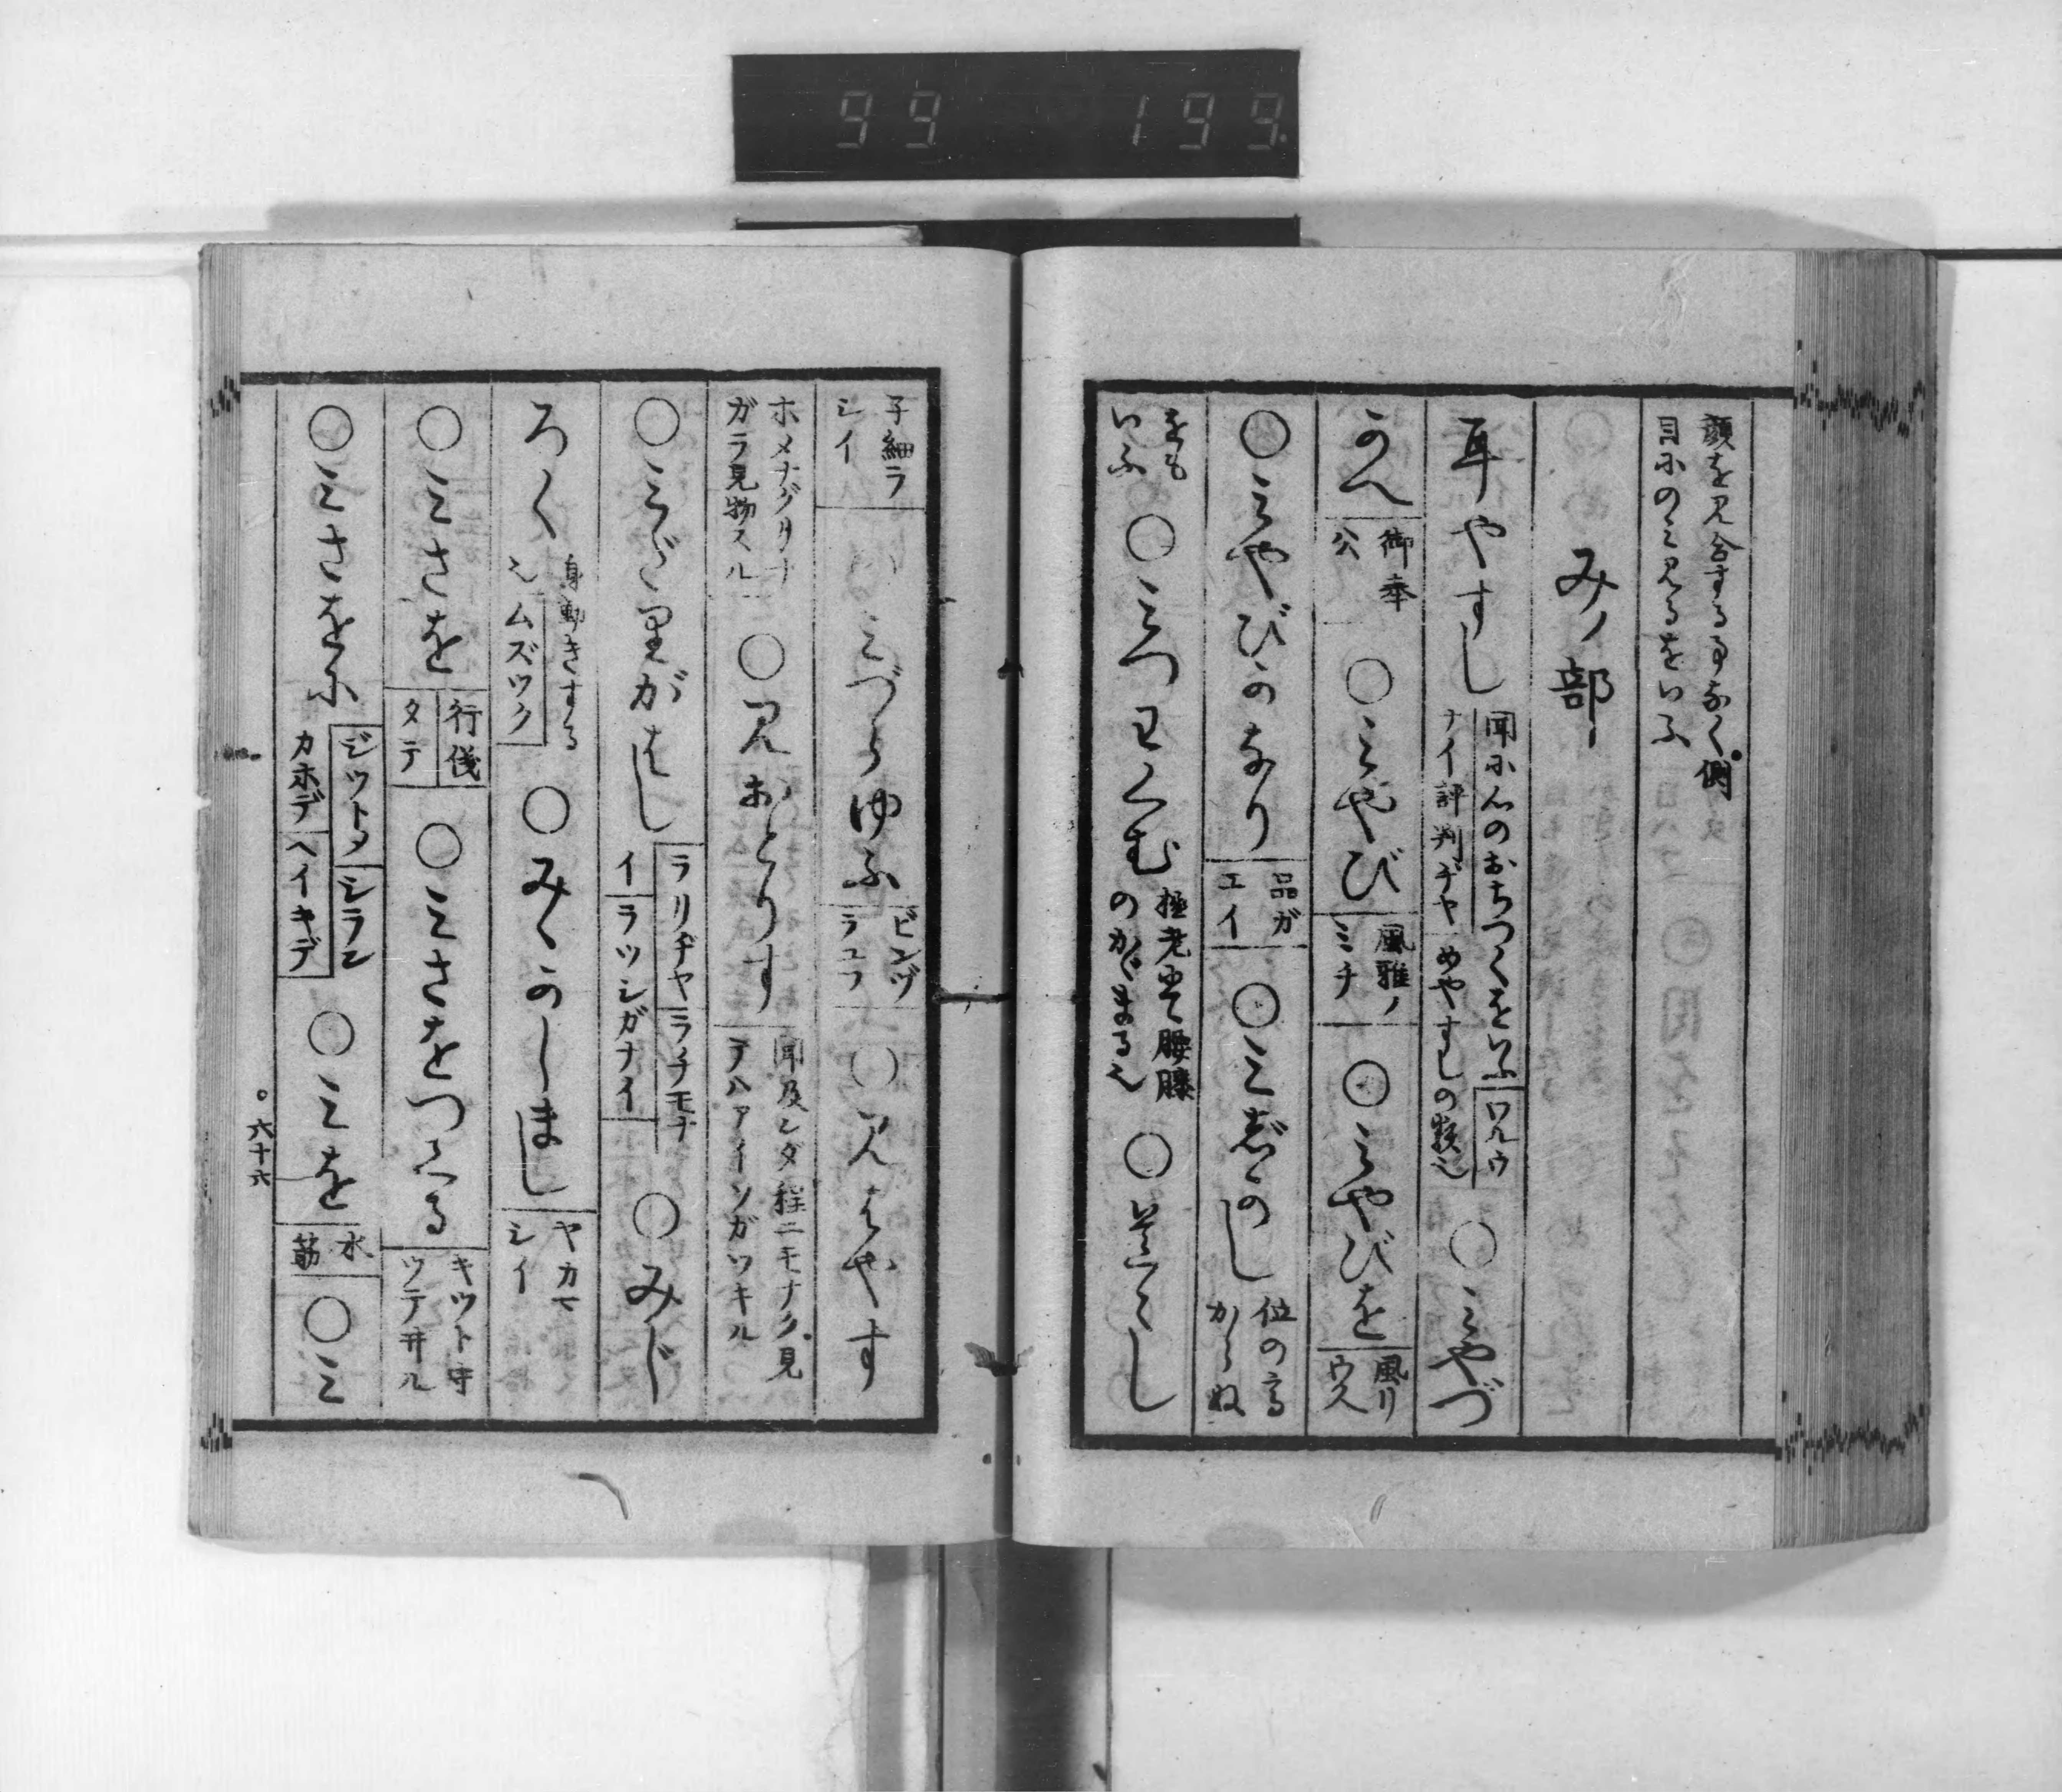 99 199
顔を見合する事なく側
目にのミ見るをいふ
みノ部
耳やすし
聞に心のおちつくをいふ ワルウ
ナイ評判ヂヤ めやすしの類也
○ミやづ
かへ
御奉
公
○ミやび
風雅ノ
ミチ
○ミやびを
風リウ人
○ミやびかなり
品ガ
エイ
○ミじかし
位の高
からぬ
をも
いふ
○ミつわくむ
極老にて腰膝
のかゞまる也
子細ラ
シイ
ミづらゆふ
ビンヅ
ラユフ
○見はやす
ホメナグリナ
ガラ見物スル
○見おとりす
聞及ンダ程ニモナク見
テハアイソガツキル
○ミだりがはし
ラリヂヤ ラチモナ
イ ラツシガナイ
○みじ
ろく
身動きする
也 ムズツク
○みゝかしまし
ヤカマ
シイ
○ミさを
行儀
タテ
○ミさをつくる
キツト守
ツテ井ル
○ミさをに
ジツトタ シラン
カホデ ヘイキデ
○ミを
水
筋
○ミ
六十六